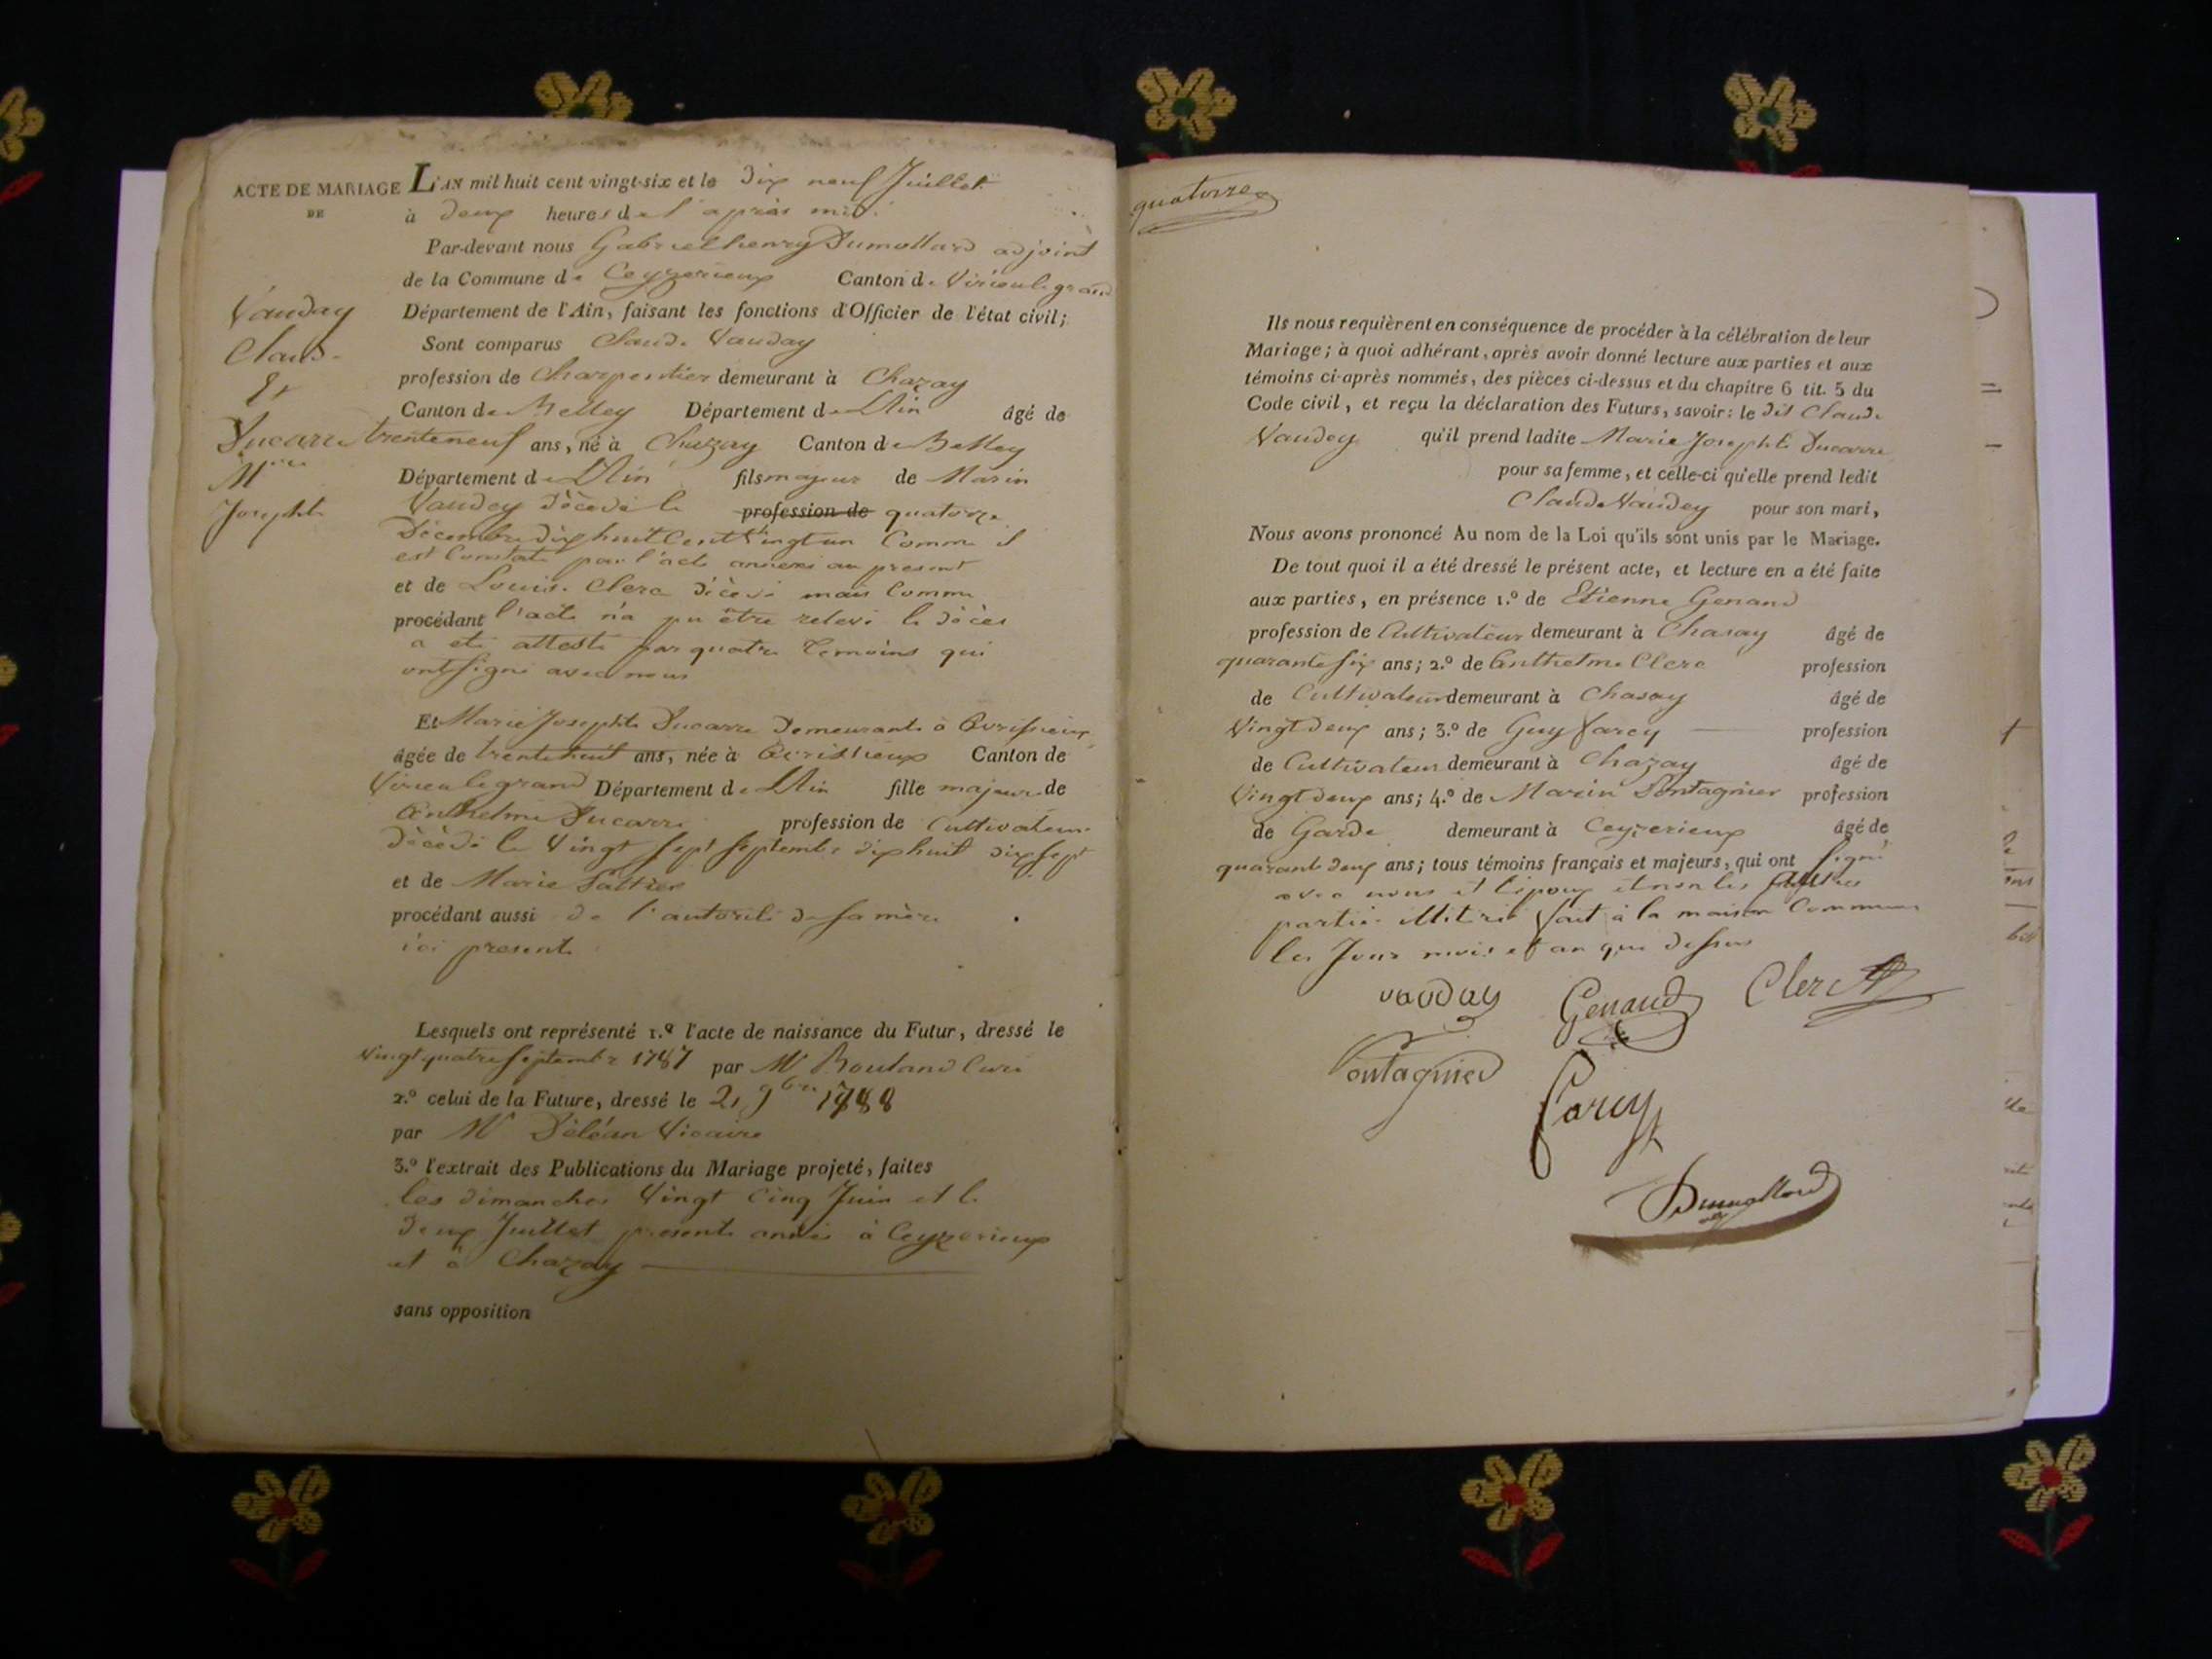 ACTE DE MARIAGE
DE
Vauday
Claud.
Et
Ducarre
M
Josephte
L'AN mil huit cent vingt-six et le Dix neuf Juillet
à Deux heures de l'après midi
Par-devant nous Gabriel henry Dumollard adjoint
de la Commune de Ceyzerieux Canton de Virieu le grand
Département de l'Ain, faisant les fonctions d'Officier de l'état civil;
Sont comparus Claude Vauday
profession de Charpentier demeurant à Chazay
Canton de Belley Département de L'Ain âgé de
trente neuf ans, né à Chazay Canton de Belley
Département de L'Ain fils majeur de Marin
Vaudey décédé le profession de quatorze
Décembre dix huit Cent Vingt un Comme il
est Constaté par l'acte annexé au présent
et de Louise Clerc décédé mais Comme
procédant l'acte n'a pu être relevé le décès
a été attesté par quatre Témoins qui
ont signé avec nous
Et Marie Josephte Ducarre Demeurante à Avrissieux
âgée de trente huit ans, née à Avrissieux Canton de
Virieu le grand Département de L'Ain fille majeure de
Anthelme Ducarre profession de Cultivateur
Décédé le Vingt sept septembre dix huit dix sept
et de Marie
procédant aussi de l'autorité de sa mère
ici présente
Lesquels ont représenté 1.º l'acte de naissance du Futur, dressé le
Vingt quatre septembre 1787 par Mr Bouland Curé
2.º celui de la Future, dressé le 21 9bre 1788
par Mr Déléan Vicaire
3.º l'extrait des Publications du Mariage projeté, faites
les dimanches Vingt Cinq Juin et le
deux Juillet présente année à Ceyzerieux
et à Chazay
sans opposition
quatorze
Ils nous requièrent en conséquence de procéder à la célébration de leur
Mariage; à quoi adhérant, après avoir donné lecture aux parties et aux
témoins ci-après nommés, des pièces ci-dessus et du chapitre 6 tit. 5 du
Code civil, et reçu la déclaration des Futurs, savoir: le dit Claude
Vaudey qu'il prend ladite Marie Josephte Ducarre
pour sa femme, et celle-ci qu'elle prend ledit
Claude Vaudey pour son mari,
Nous avons prononcé Au nom de la Loi qu'ils sont unis par le Mariage.
De tout quoi il a été dressé le présent acte, et lecture en a été faite
aux parties, en présence 1.º de Etienne Genand
profession de Cultivateur demeurant à Chasay âgé de
quarante six ans; 2.º de Anthelme Clerc profession
de Cultivateur demeurant à Chasay âgé de
Vingt deux ans; 3.º de Guy Carey profession
de Cultivateur demeurant à Chazay âgé de
Vingt deux ans; 4.º de Marin Pontagnier profession
de Garde demeurant à Ceyzerieux âgé de
quarante deux ans; tous témoins français et majeurs, qui ont signé
avec nous et l'époux et non les autres
parties Fait à la maison Commune
les Jour mois et an que dessus
vauday Genand Clerc
Pontagnier
Carey
Dumollard